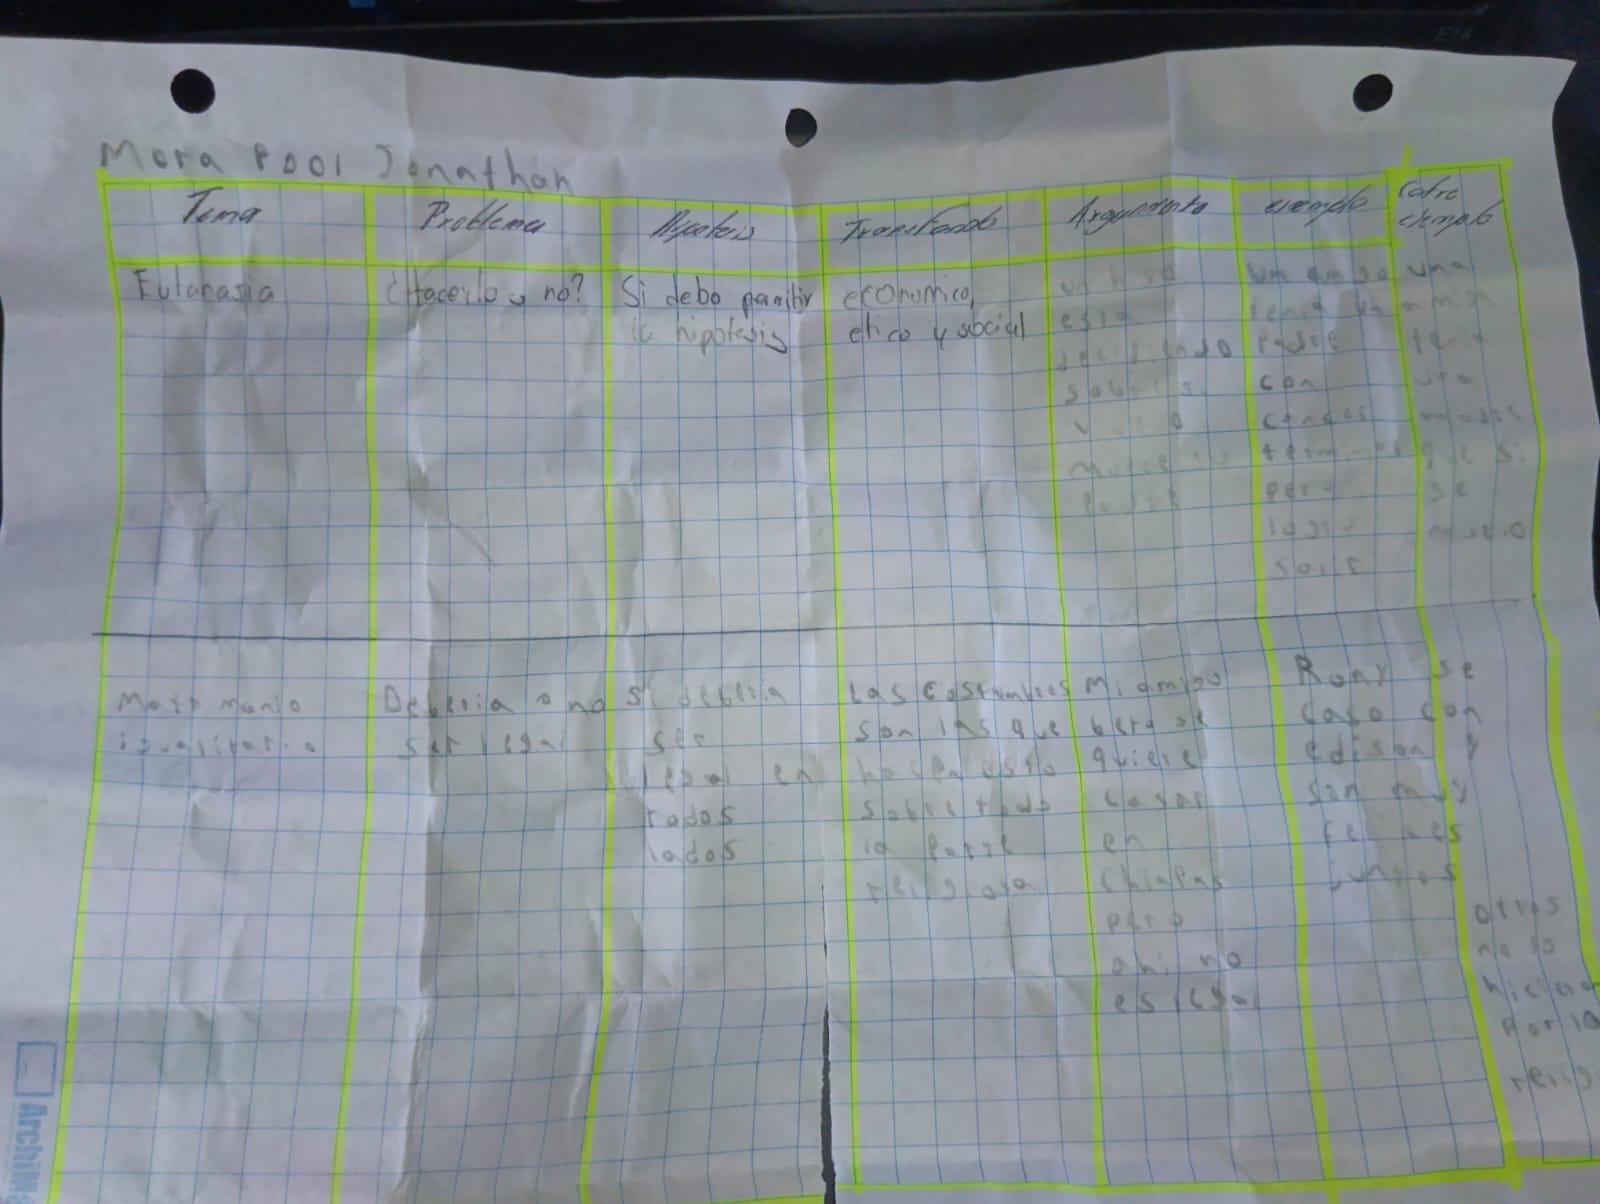 Mora Pool Jonathan
Tema
Problema
Hipotesis
Transfondo
Argumento
ejemplo
Contra
ejemplo
Eutanasia
¿Hacerlo o no?
Si debo permitir
la hipotesis
economico,
etico y social
un
esta
decidiendo
sobre
muere
padre
un amigo
tenia un
padre
con
cancer
terminal
pero
logro
salir
una
amiga
una
madre
que si
se
murio
Matrimonio
igualitario
Deberia o no
ser legal
Si deberia
ser
legal en
todos
lados
Las costumbres
son las que
hacen esto
sobre todo
la parte
religiosa
Mi amigo
beto se
quiere
casar
en
Chiapas
pero
ahi no
es legal
Rony se
caso con
edison y
son muy
felices
juntos
otros
no lo
hicieron
por la
relig